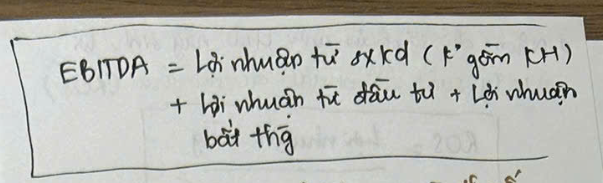 EBITDA = Lợi nhuận từ sxkd (k° gồm KH)
+ Lợi nhuận từ đầu tư + Lợi nhuận
bất thg